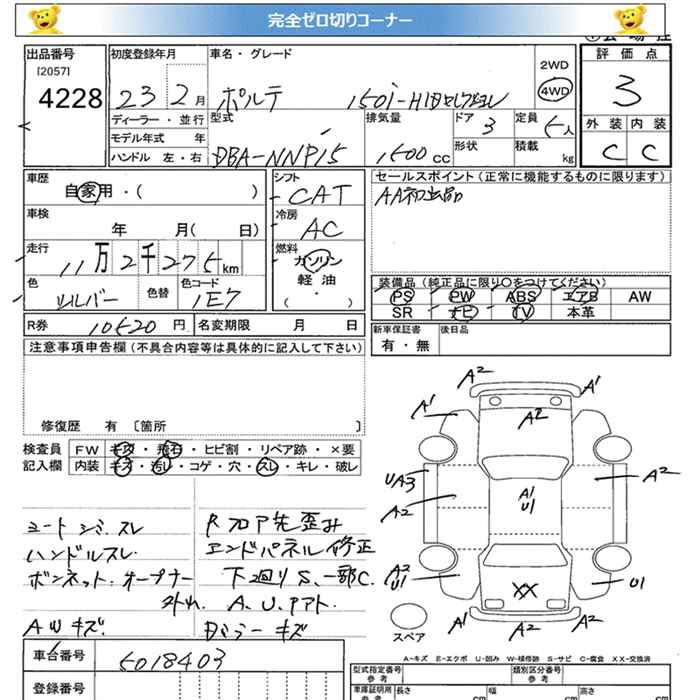 完全ゼロ切りコーナー
出品番号
[2057]
4228
初度登録年月
23 2 月
車名・グレード
ポルテ 150i-HIDセレクション
2WD
4WD
評価点
3
外装 内装
C C
ディーラー・並行
モデル年式 年
ハンドル 左・右
型式
DBA-NNP15
排気量
1500 cc
ドア
3
定員
5人
形状
積載
kg
車歴
自家用・( )
シフト
CAT
セールスポイント(正常に機能するものに限ります)
AA初出品
車検
年 月( 日)
冷房
AC
走行
11万2千275km
燃料
ガソリン
軽油
( ・ )
色
シルバー
色替
色コード
1E7
装備品(純正品に限り○をつけてください)
PS PW ABS エアB AW
SR ナビ TV 本革
R券
10520 円
名変期限 月 日
新車保証書
有・無
後日品
注意事項申告欄(不具合内容等は具体的に記入して下さい)
修復歴 有 〔箇所 〕
検査員
記入欄
FW キズ・飛石・ヒビ割・リペア跡・×要
内装 キズ・汚レ・コゲ・穴・スレ・キレ・破レ
シートシミ、スレ
ハンドルスレ
ボンネットオープナー
外れ
AWキズ
Rフロア先歪み
エンドパネル修正
下廻りS、一部C
A、U、アアト
Dミラーキズ
A2
A1
A1
A2
UA3
A2
A2
A1
U1
A2
U1
U1
XX
A1
A2
A2
スペア
A-キズ E-エクボ U-凹み W-補修跡 S-サビ C-腐食 XX-交換済
車台番号
5018403
登録番号
型式指定番号
参考
類別区分番号
参考
車庫証明用
参考
長さ
cm
幅
cm
高さ
cm